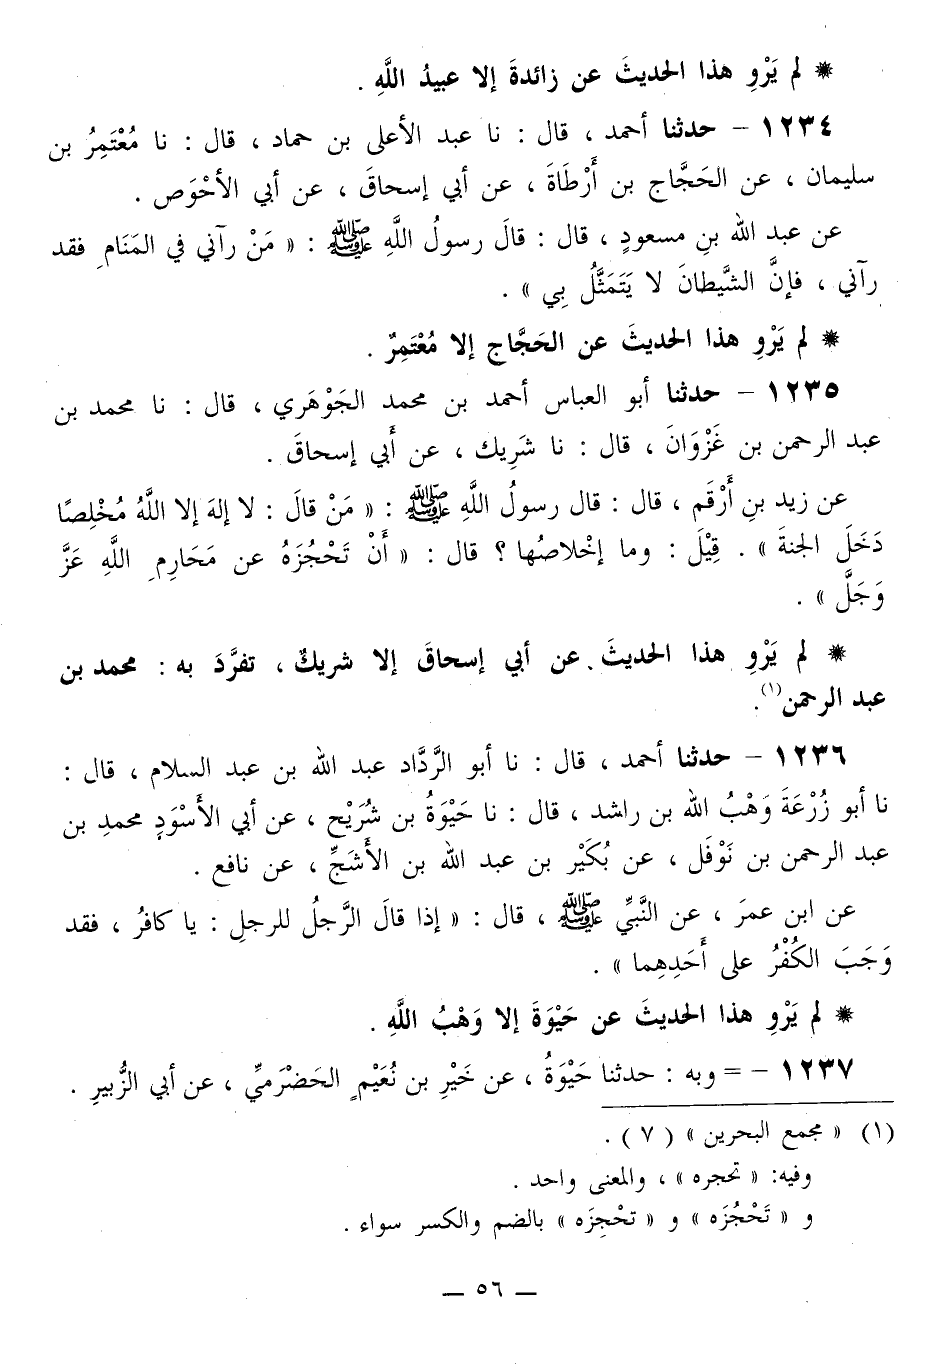 * لم يَرْوِ هذا الحديثَ عن زائدةَ إلا عبيدُ اللَّهِ .
١٢٣٤ – حدثنا أحمد ، قال : نا عبد الأعلى بن حماد ، قال : نا مُعْتَمِرُ بن
سليمان ، عن الحَجَّاج بن أَرْطَاةَ ، عن أبي إسحاقَ ، عن أبي الأحْوَص .
عن عبد الله بنِ مسعودٍ ، قال : قالَ رسولُ اللَّهِ ﷺ : « مَنْ رآني في المَنَامِ فقد
رآني ، فإنَّ الشَّيطانَ لا يَتَمَثَّلُ بِي » .
* لم يَرْوِ هذا الحديثَ عن الحَجَّاج إلا مُعْتَمِرٌ .
١٢٣٥ – حدثنا أبو العباس أحمد بن محمد الجَوْهَري ، قال : نا محمد بن
عبد الرحمن بن غَزْوَانَ ، قال : نا شَرِيك ، عن أَبي إسحاقَ .
عن زيد بنِ أَرْقَم ، قال : قال رسولُ اللَّهِ ﷺ : « مَنْ قالَ : لا إلهَ إلا اللَّهُ مُخْلِصًا
دَخَلَ الجنةَ » . قِيْلَ : وما إخْلاصُها ؟ قال : « أَنْ تَحْجُزَهُ عن مَحَارِمِ اللَّهِ عَزَّ
وَجَلَّ » .
* لم يَرْوِ هذا الحديثَ عن أبي إسحاقَ إلا شريكٌ ، تفرَّدَ به : محمد بن
عبد الرحمن(١).
١٢٣٦ – حدثنا أحمد ، قال : نا أبو الرَّدَّاد عبد الله بن عبد السلام ، قال :
نا أبو زُرْعَةَ وَهْبُ الله بن راشد ، قال : نا حَيْوَةُ بن شُرَيْح ، عن أبي الأَسْوَدِ محمدِ بن
عبد الرحمن بن نَوْفَل ، عن بُكَيْر بن عبد الله بن الأَشَجِّ ، عن نافع .
عن ابن عمرَ ، عن النَّبيِّ ﷺ ، قال : « إذا قالَ الرَّجلُ للرجلِ : يا كافرُ ، فقد
وَجَبَ الكُفْرُ على أَحَدِهِما » .
* لم يَرْوِ هذا الحديثَ عن حَيْوَةَ إلا وَهْبُ اللَّهِ .
١٢٣٧ – = وبه : حدثنا حَيْوَةُ ، عن خَيْرِ بن نُعَيْمٍ الحَضْرَميِّ ، عن أبي الزُّبيرِ .
(١) « مجمع البحرين » ( ٧ ) .
وفيه: « تحجره » ، والمعنى واحد .
و « تَحْجُزَه » و « تحْجِزَه » بالضم والكسر سواء .
— ٥٦ —